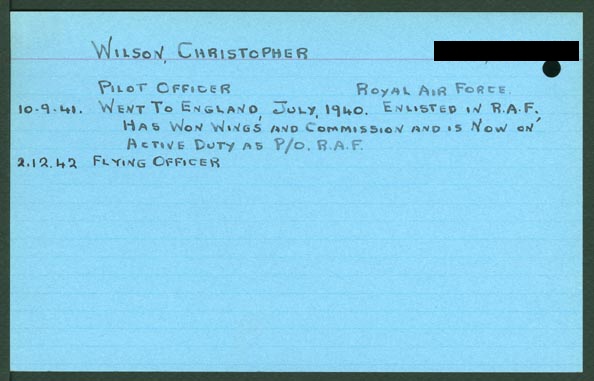 WILSON, CHRISTOPHER
PILOT OFFICER ROYAL AIR FORCE.
10.9.41. WENT TO ENGLAND, JULY, 1940. ENLISTED IN R.A.F.
HAS WON WINGS AND COMMISSION AND IS NOW ON
ACTIVE DUTY AS P/O. R.A.F.
2.12.42 FLYING OFFICER